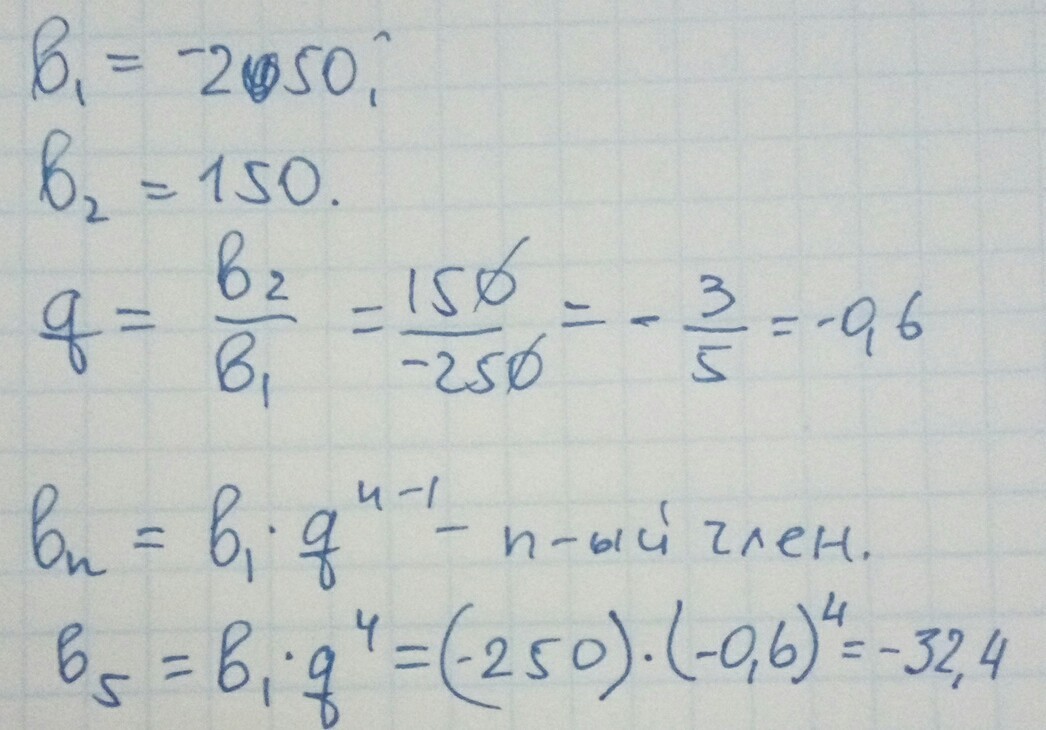 b₁ = -250;
b₂ = 150.
q = b₂/b₁ = 150/-250 = - 3/5 = -0,6
bₙ = b₁ · qⁿ⁻¹ - n-ый член.
b₅ = b₁ · q⁴ = (-250) · (-0,6)⁴ = -32,4